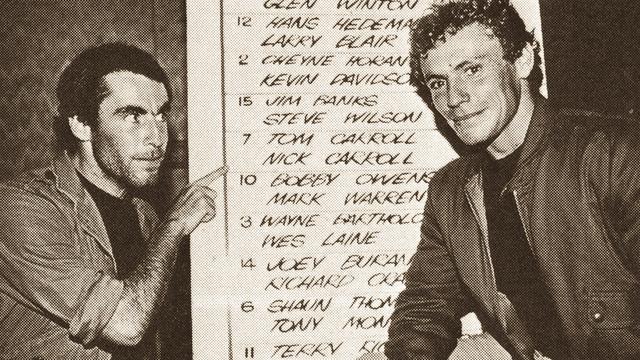 GLEN WINTON
12 HANS HEDEMA
LARRY BLAIR
2 CHEYNE HORAN
KEVIN DAVIDSO
15 JIM BANKS
STEVE WILSON
7 TOM CARROLL
NICK CARROLL
10 BOBBY OWENS
MARK WARREN
3 WAYNE BARTHOLO
WES LAINE
14 JOEY BURAN
RICHARD CRA
6 SHAUN THOM
TONY MON
11 TERRY RIC